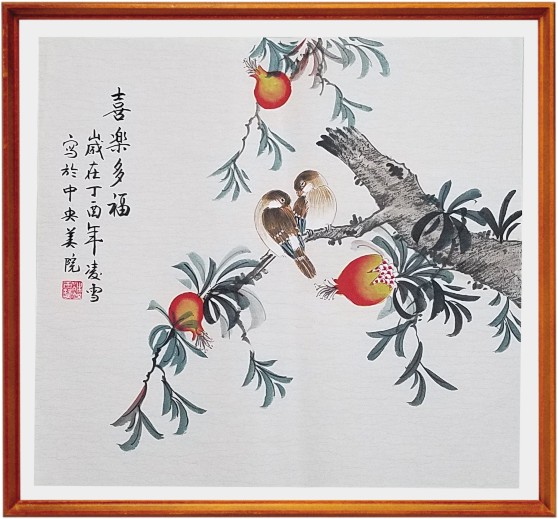 喜樂多福
歲在丁酉年凌雪
寫於中央美院